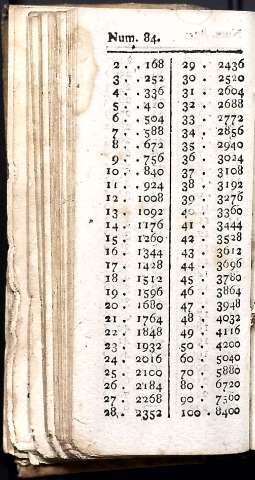 Num. 84.
2 . . 168
3 . . 252
4 . . 336
5 . . 420
6 . . 504
7 . . 588
8 . . 672
9 . . 756
10 . . 840
11 . . 924
12 . 1008
13 . 1092
14 . 1176
15 . 1260
16 . 1344
17 . 1428
18 . 1512
19 . 1596
20 . 1680
21 . 1764
22 . 1848
23 . 1932
24 . 2016
25 . 2100
26 . 2184
27 . 2268
28 . 2352
29 . 2436
30 . 2520
31 . 2604
32 . 2688
33 . 2772
34 . 2856
35 . 2940
36 . 3024
37 . 3108
38 . 3192
39 . 3276
40 . 3360
41 . 3444
42 . 3528
43 . 3612
44 . 3696
45 . 3780
46 . 3864
47 . 3948
48 . 4032
49 . 4116
50 . 4200
60 . 5040
70 . 5880
80 . 6720
90 . 7560
100 . 8400